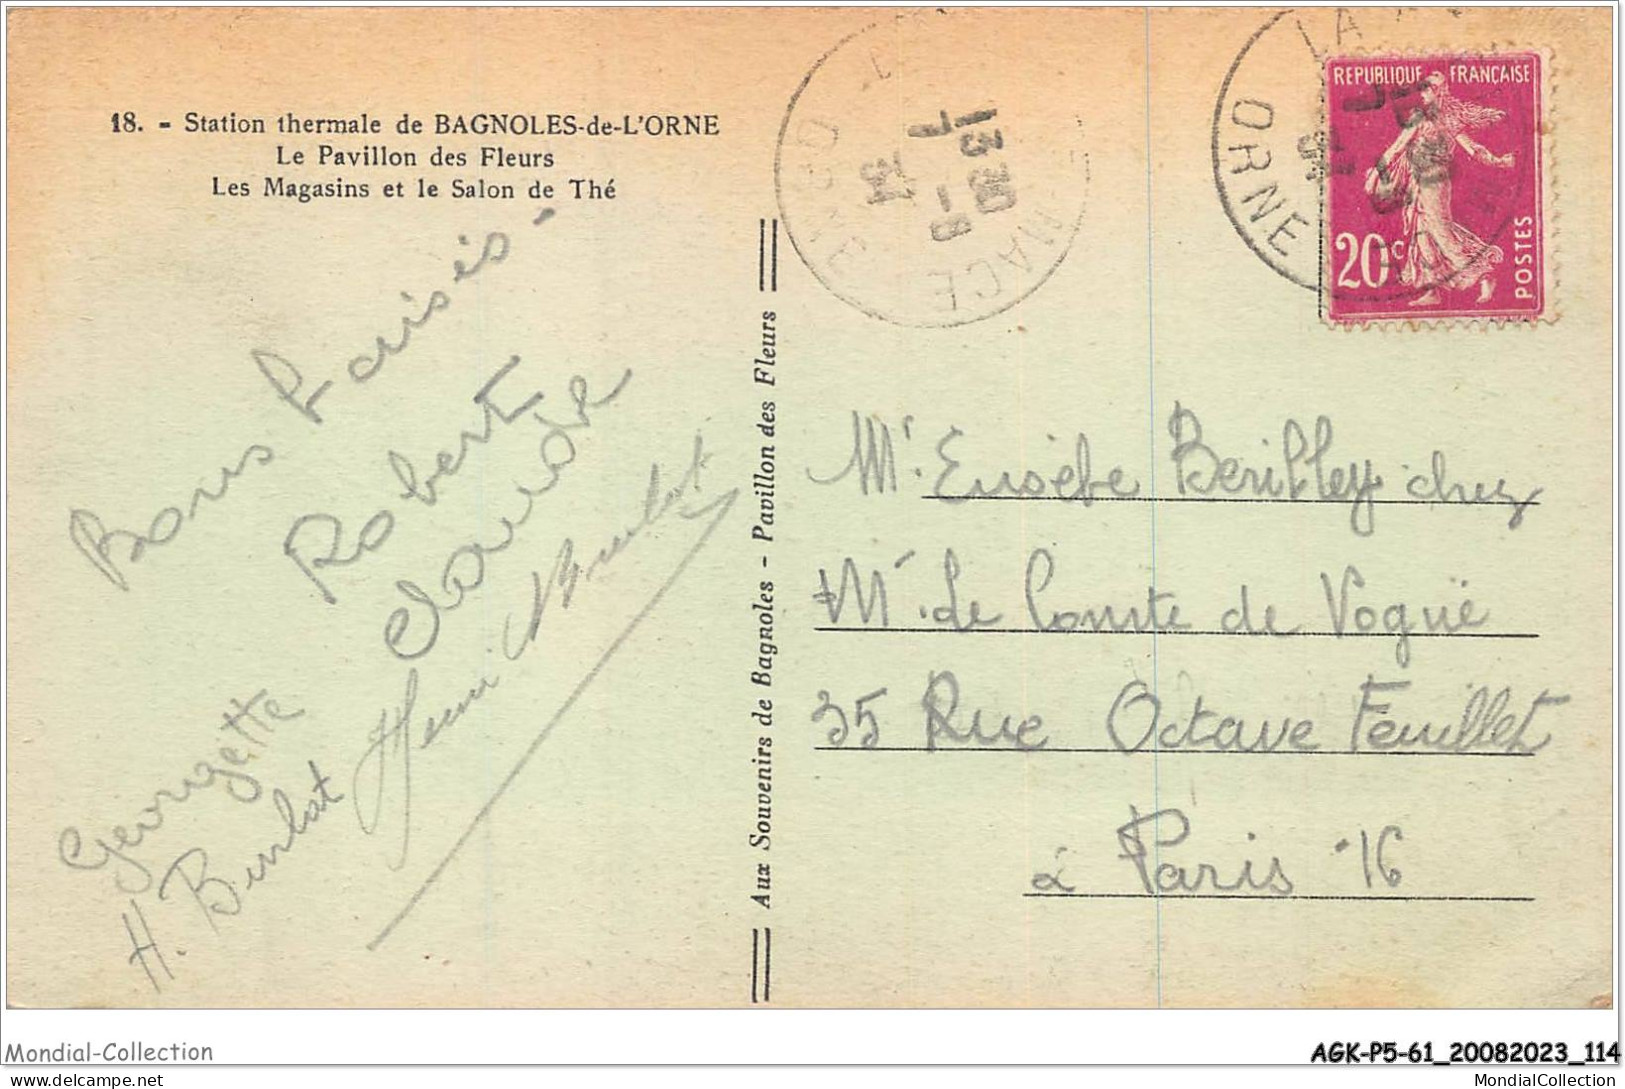 18. - Station thermale de BAGNOLES-de-L'ORNE
Le Pavillon des Fleurs
Les Magasins et le Salon de Thé
Bons Baisés -
Robert
Claude
Henri Burlat
Georgette
H. Burlat
Aux Souvenirs de Bagnoles - Pavillon des Fleurs
13 30
7 -8
34
ORNE
MACE
LA
ORNE
13 30
7 -8
34
REPUBLIQUE FRANÇAISE
20c
POSTES
Mr. Eusèbe Berilley chez
Mr. Le Comte de Vogüé
35 Rue Octave Feuillet
à Paris 16
Mondial-Collection
AGK-P5-61_20082023_114
www.delcampe.net
MondialCollection